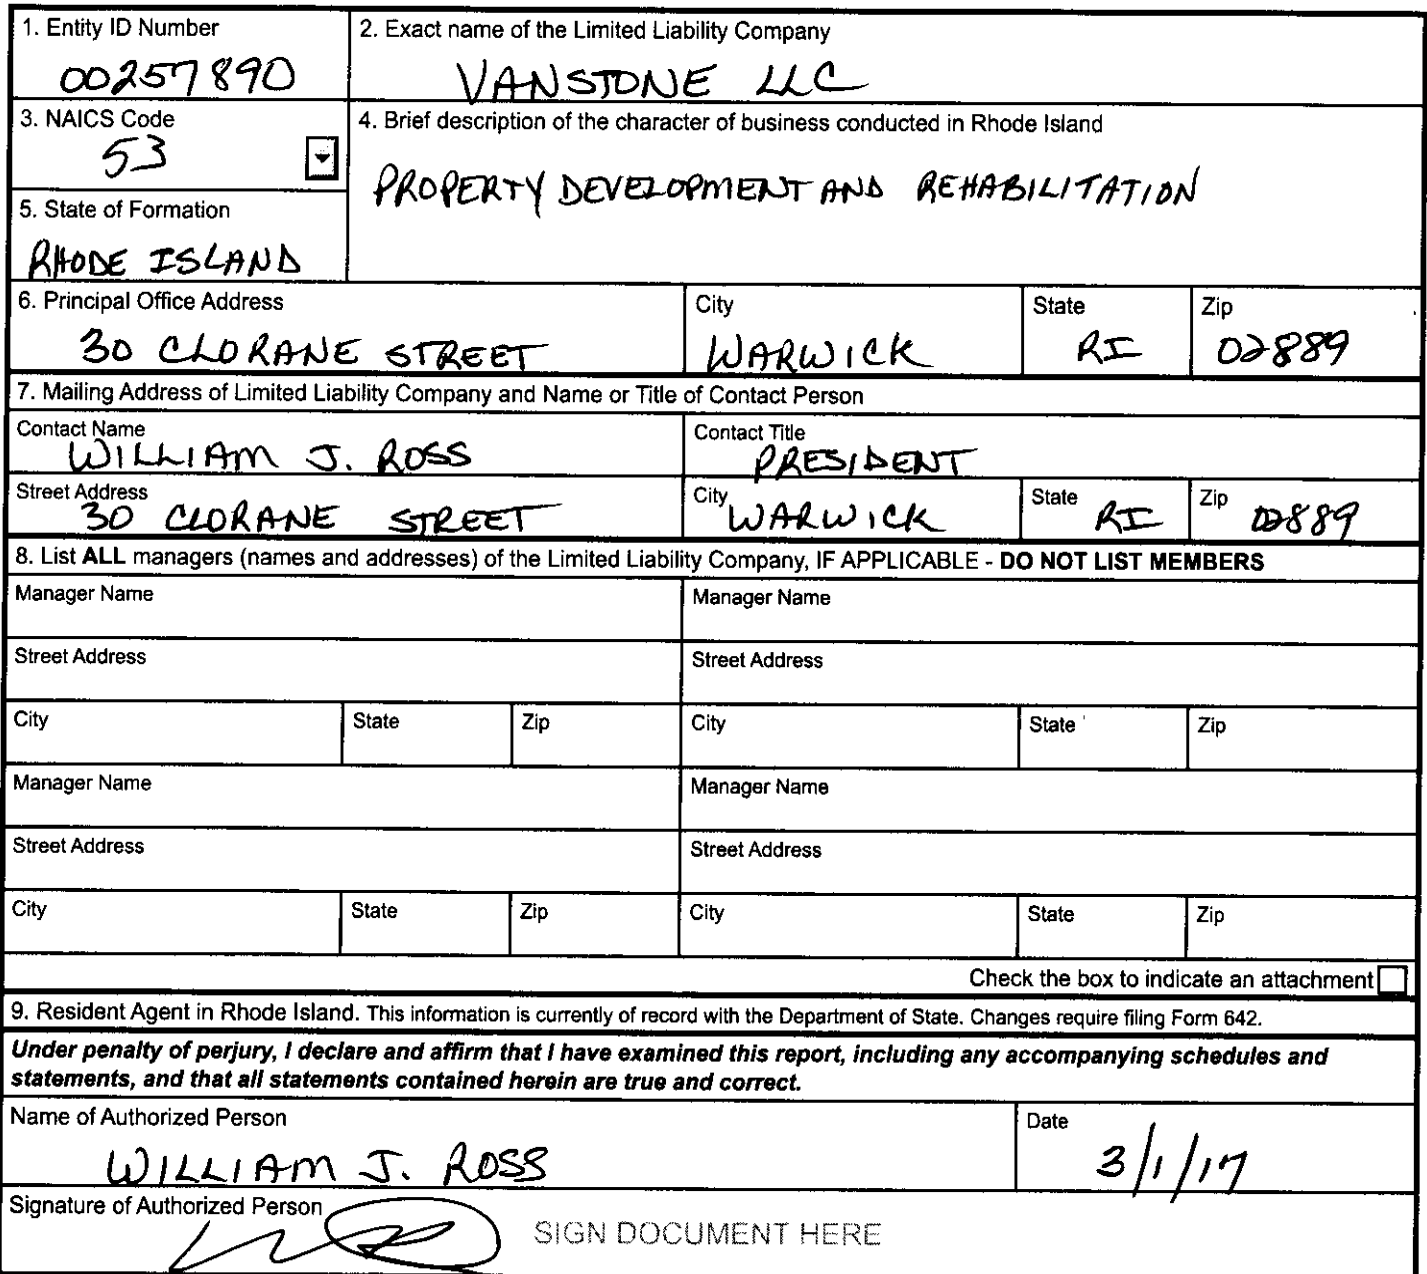 1. Entity ID Number
00257890
2. Exact name of the Limited Liability Company
VANSTONE LLC
3. NAICS Code
53
4. Brief description of the character of business conducted in Rhode Island
PROPERTY DEVELOPMENT AND REHABILITATION
5. State of Formation
RHODE ISLAND
6. Principal Office Address
30 CLORANE STREET
City
WARWICK
State
RI
Zip
02889
7. Mailing Address of Limited Liability Company and Name or Title of Contact Person
Contact Name
WILLIAM J. ROSS
Contact Title
PRESIDENT
Street Address
30 CLORANE STREET
City
WARWICK
State
RI
Zip
02889
8. List ALL managers (names and addresses) of the Limited Liability Company, IF APPLICABLE - DO NOT LIST MEMBERS
Manager Name
Manager Name
Street Address
Street Address
City State Zip City State Zip
Manager Name
Manager Name
Street Address
Street Address
City State Zip City State Zip
Check the box to indicate an attachment
9. Resident Agent in Rhode Island. This information is currently of record with the Department of State. Changes require filing Form 642.
Under penalty of perjury, I declare and affirm that I have examined this report, including any accompanying schedules and
statements, and that all statements contained herein are true and correct.
Name of Authorized Person
WILLIAM J. ROSS
Date
3/1/17
Signature of Authorized Person
SIGN DOCUMENT HERE